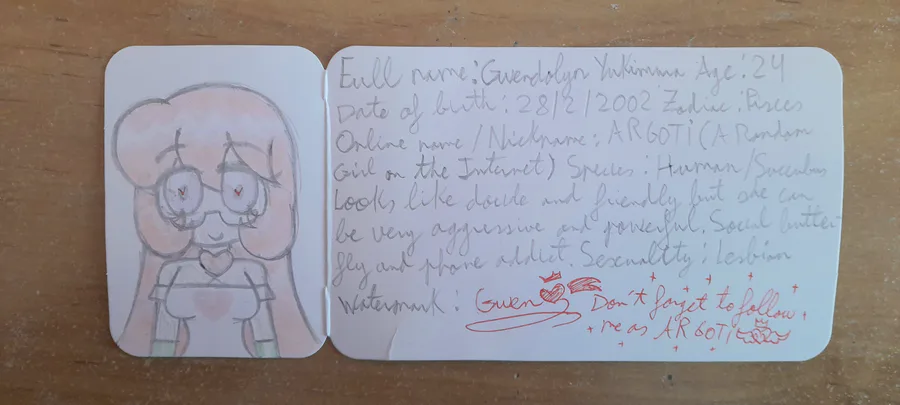 Full name: Gwendolyn Yukimura Age: 24
Date of birth: 28/2/2002 Zodiac: Pisces
Online name / Nickname: ARGOTI (A Random
Girl on the Internet) Species: Human/Succubus
Looks like docide and friendly but she can
be very aggressive and powerful. Social butter-
fly and phone addict. Sexenality: Lesbian
Watermark: Gwen Don't forget to follow
me as ARGOTI